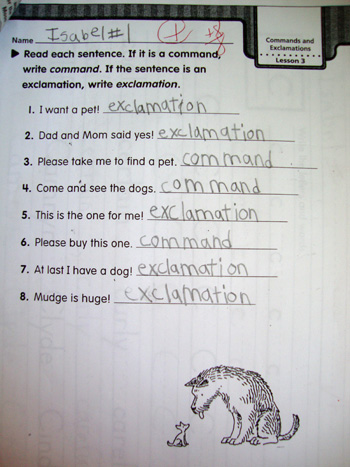 Name Isabel #1 +8
Commands and
Exclamations
Lesson 3
Read each sentence. If it is a command,
write command. If the sentence is an
exclamation, write exclamation.
1. I want a pet! exclamation
2. Dad and Mom said yes! exclamation
3. Please take me to find a pet. command
4. Come and see the dogs. command
5. This is the one for me! exclamation
6. Please buy this one. command
7. At last I have a dog! exclamation
8. Mudge is huge! exclamation